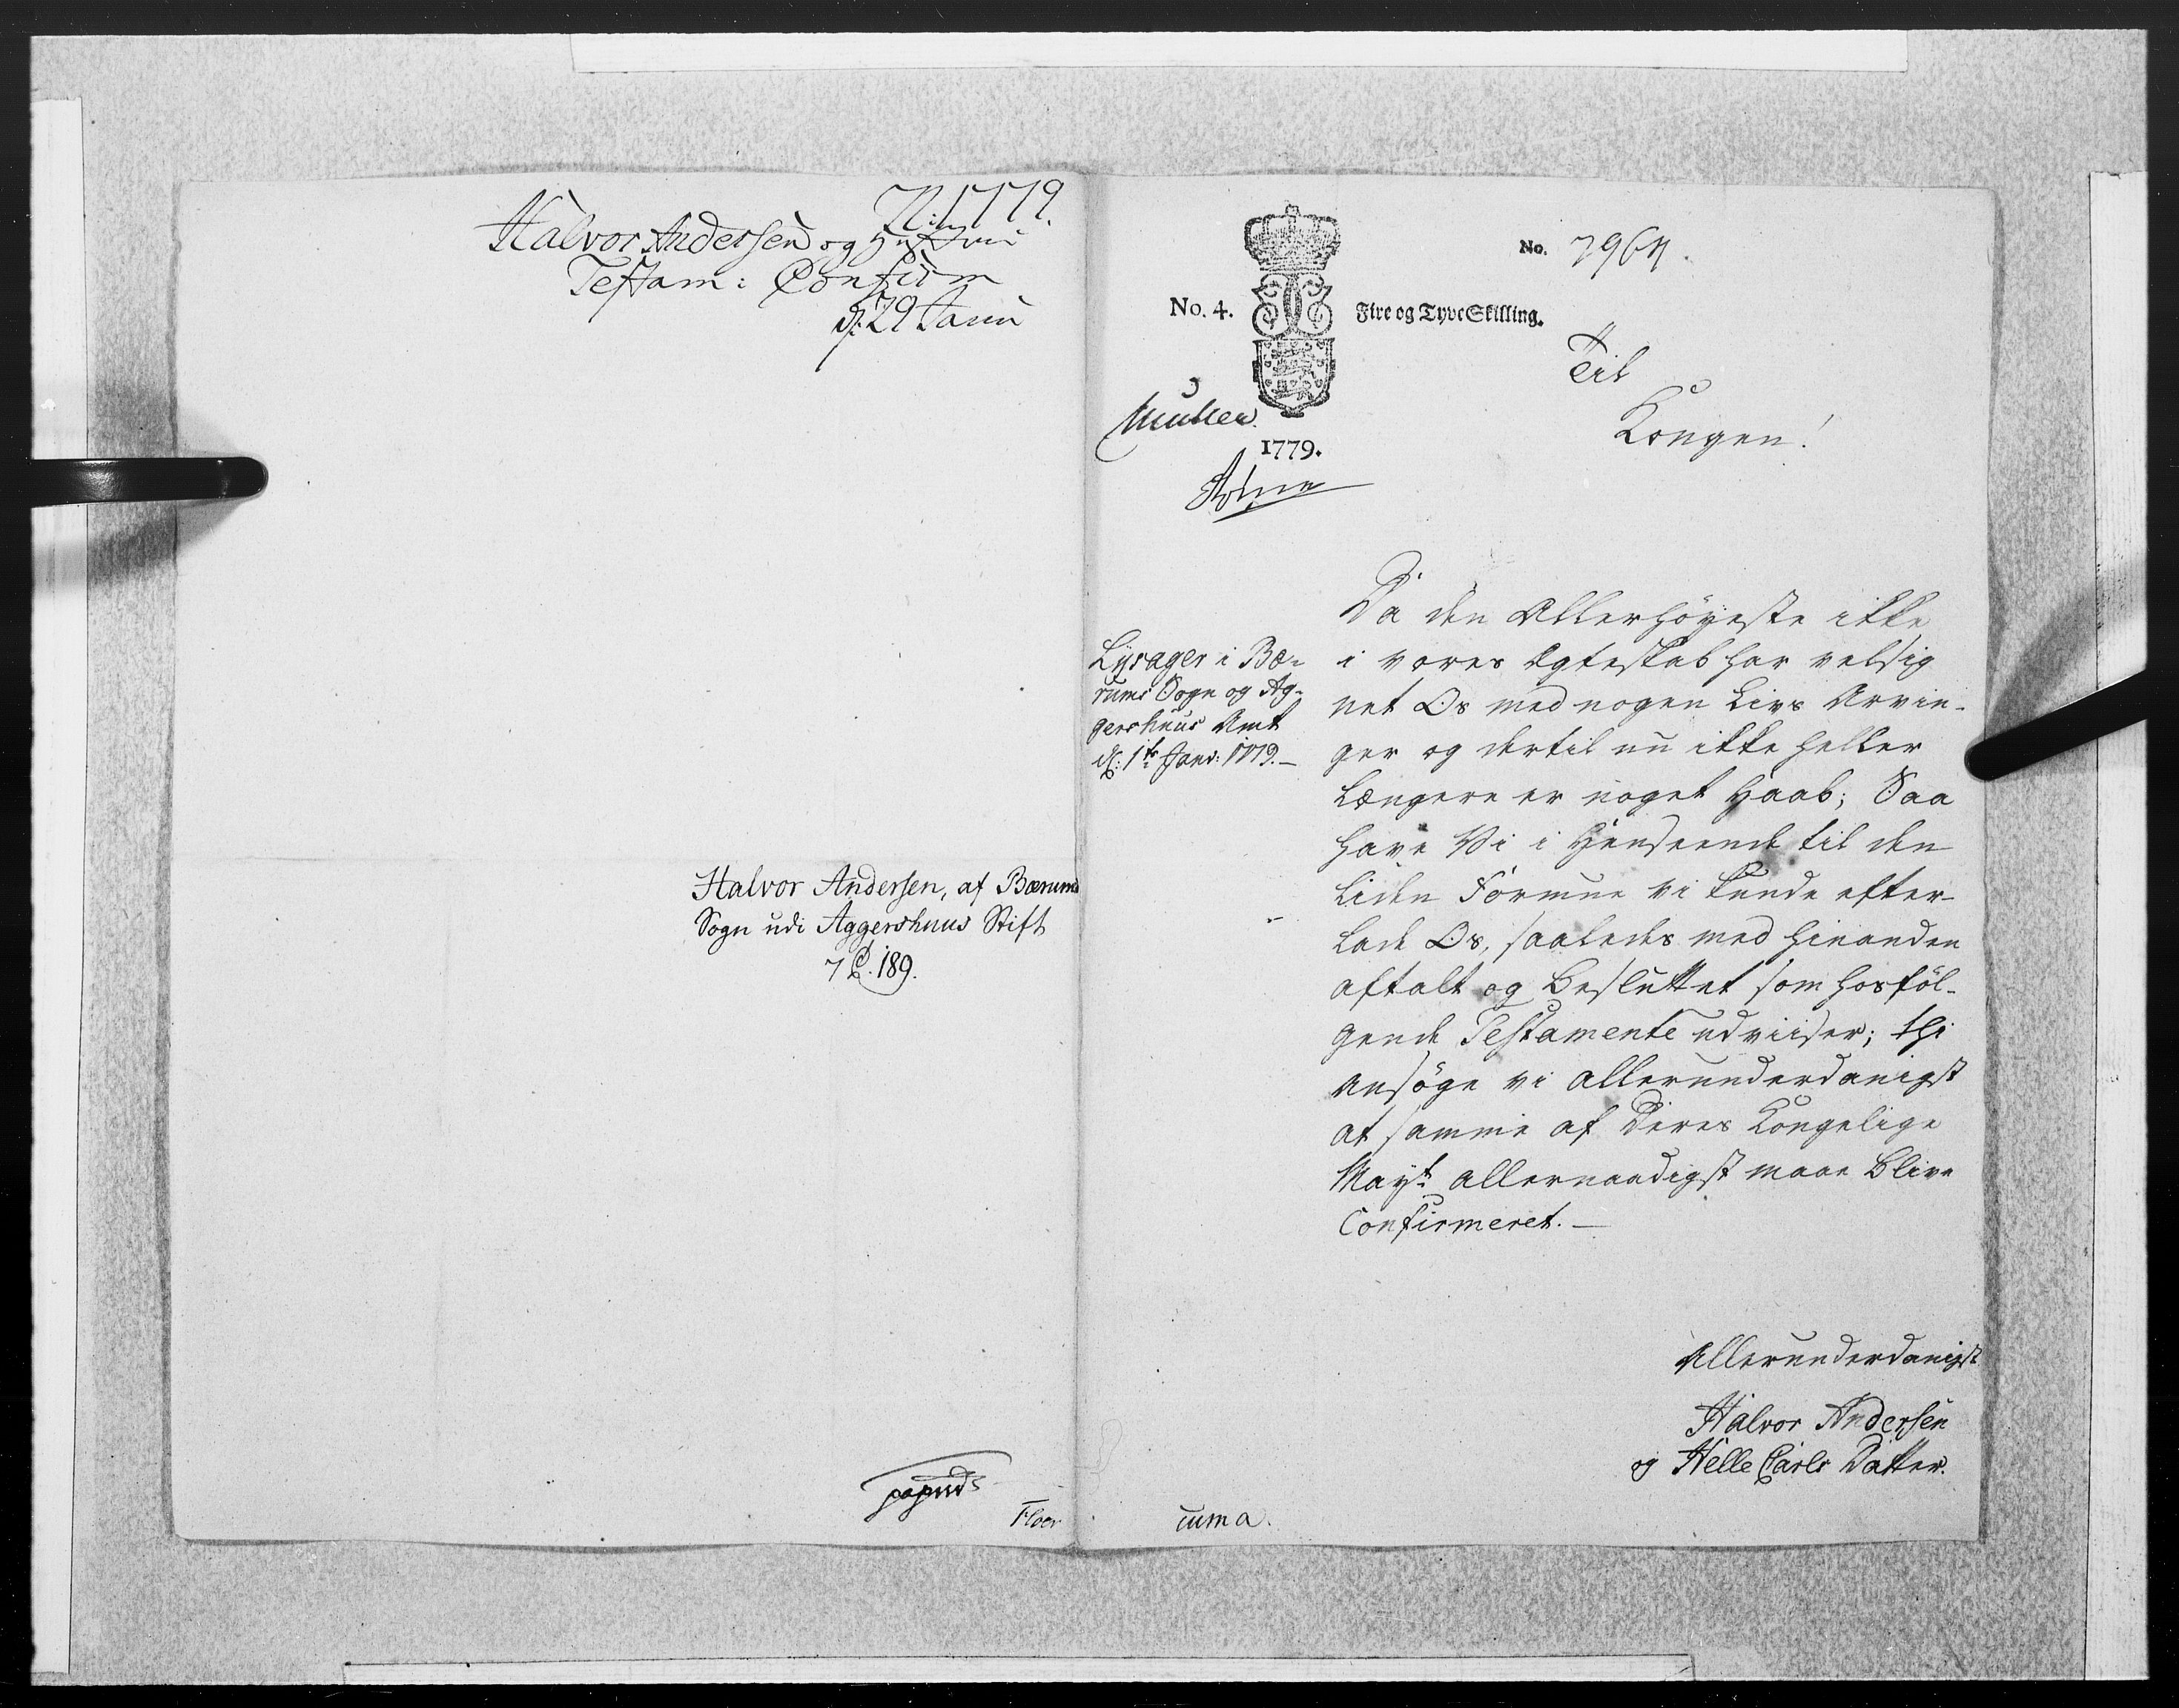 N: 1779.
Halvor Andersen og Hustrue
Testam: Confirm
d: 29 Janu
Halvor Andersen, af Bærums
Sogn udi Aggershuus Stift
7 C. 189.
Floer
No. 4.
Fire og Tyve Skilling.
No. 7964.
Müller
1779.
Holm
Til
Kongen!
Lysager i Bæ-
rums Sogn og Ag-
gershuus Amt
d: 1te Janv: 1779.
Da den Allerhöyeste ikke
i vores Egteskab har velsig
net Os med nogen Livs Arvin-
ger og dertil nu ikke heller
længere er noget Haab; Saa
have Vi i Henseende til den
liden Formue vi kunde efter-
lade Os, saaledes med hinanden
aftalt og besluttet som hosföl-
gende Testamente udviiser; thi
ansöge vi allerunderdanigst
at samme af Deres Kongelige
Mayt allernaadigst maae blive
Confirmeret.
Allerunderdanigst
Halvor Andersen
og Helle Carls Datter.
cum a.